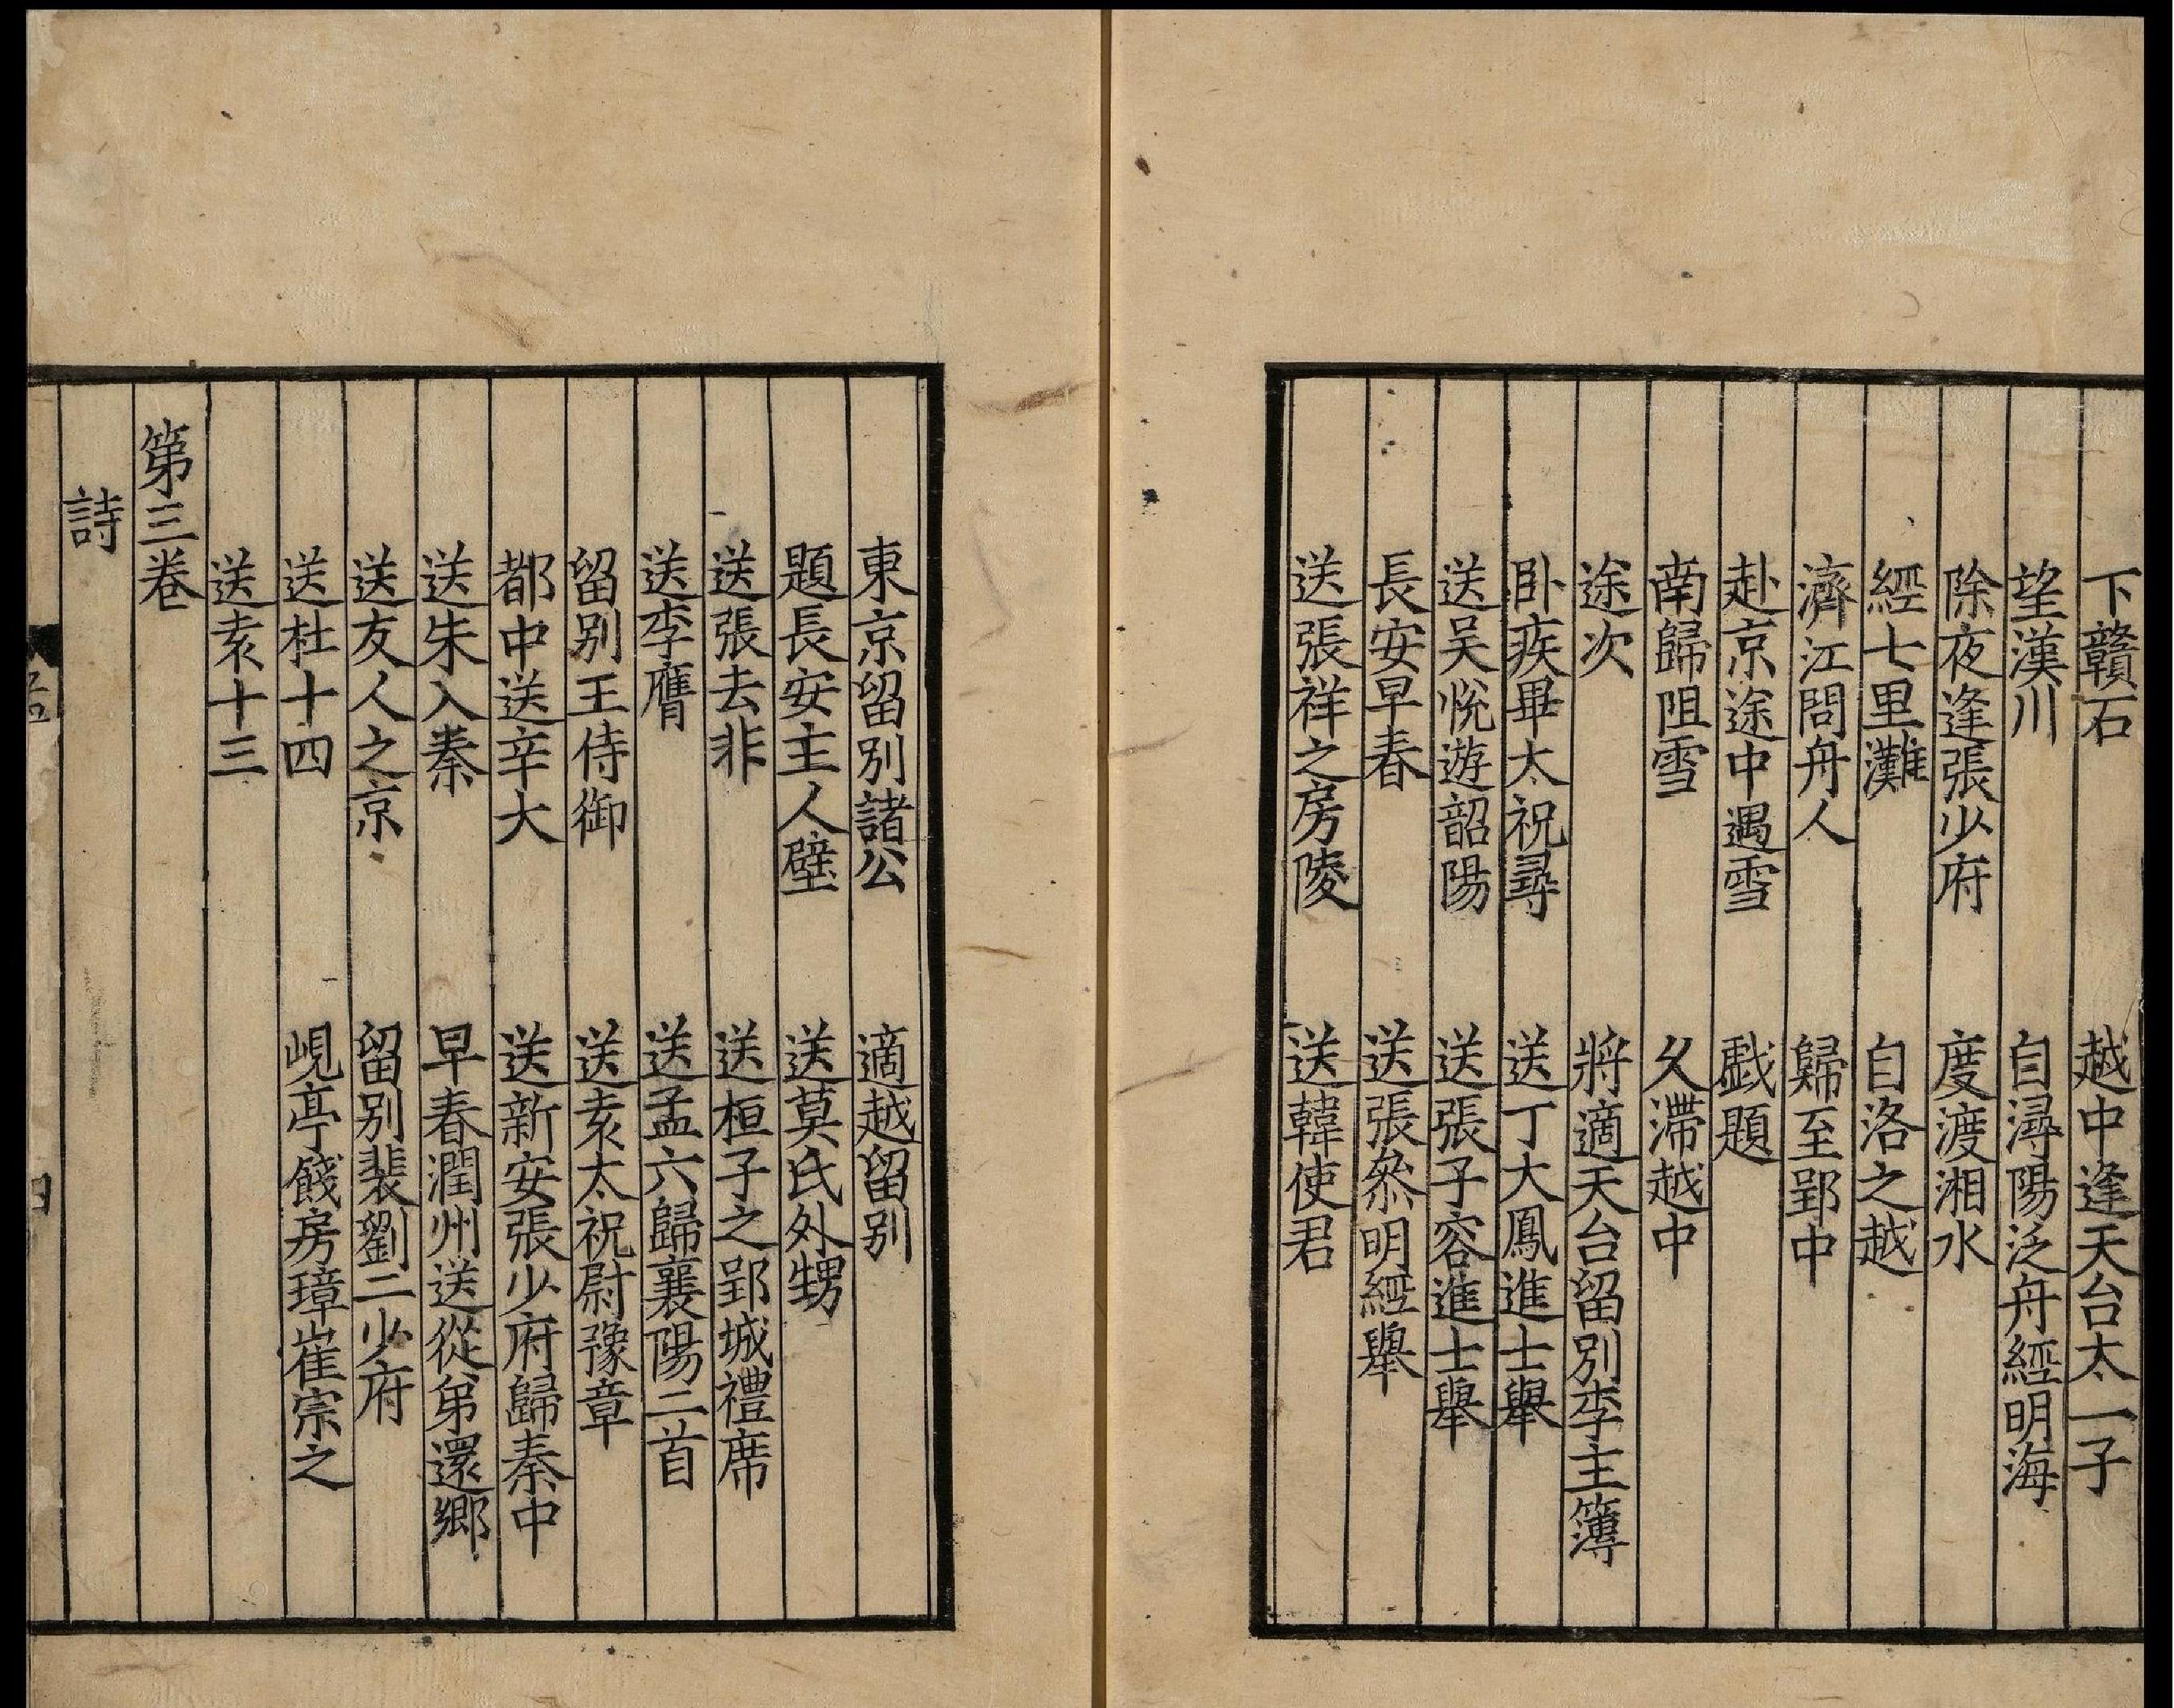 下贛石　越中逢天台太一子
望漢川　自潯陽泛舟經明海
除夜逢張少府　度渡湘水
經七里灘　自洛之越
濟江問舟人　歸至郢中
赴京途中遇雪　戱題
南歸阻雪　久滯越中
途次　將適天台留別李主簿
卧疾畢太祝尋　送丁大鳳進士舉
送吴悅遊韶陽　送張子容進士舉
長安早春　送張叅明經舉
送張祥之房陵　送韓使君
東京留別諸公　適越留別
題長安主人壁　送莫氏外甥
送張去非　送桓子之郢城禮席
送李膺　送孟六歸襄陽二首
留別王侍御　送袁太祝尉豫章
都中送辛大　送新安張少府歸秦中
送朱入秦　早春潤州送從弟還鄉
送友人之京　留別裴劉二少府
送杜十四　峴亭餞房璋崔宗之
送袁十三
第三卷
詩